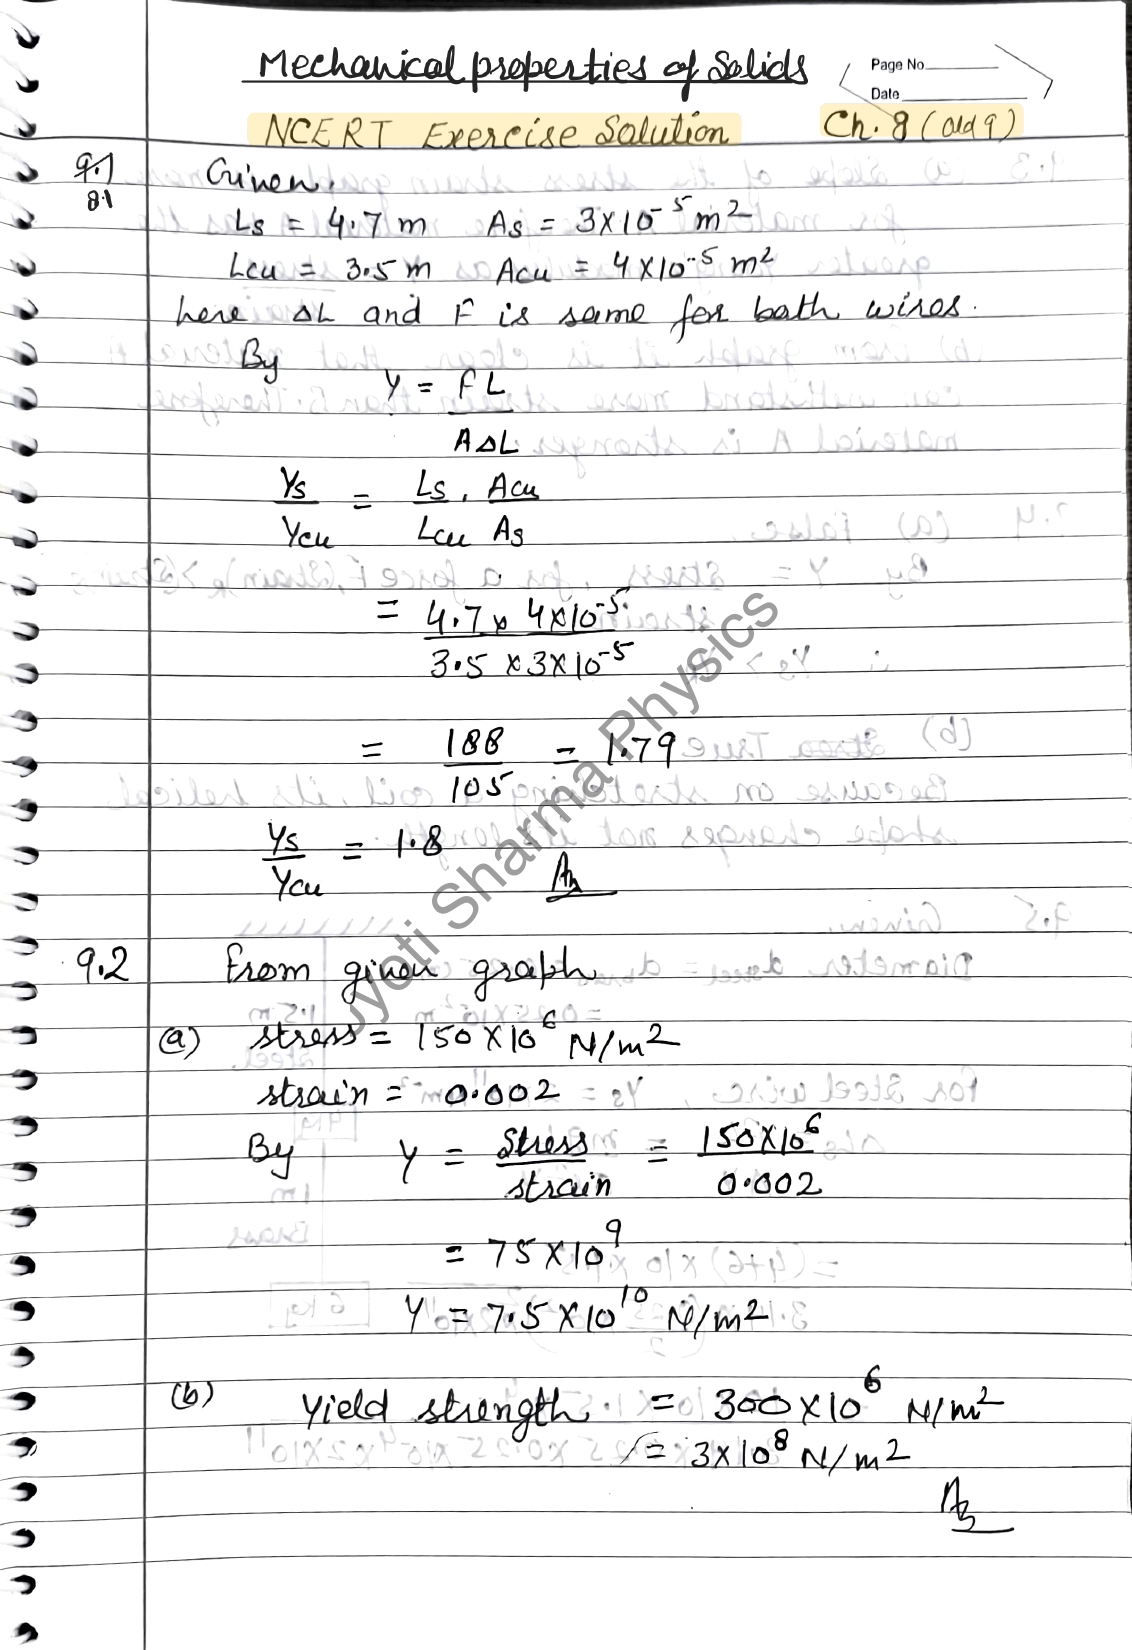 Mechanical properties of Solids
Page No
Date
NCERT Exercise Solution
Ch. 8 (old 9)
9.1
8.1
Given,
Ls = 4.7 m As = 3×10⁻⁵ m²
Lcu = 3.5 m Acu = 4×10⁻⁵ m²
here ΔL and F is same for both wires.
By
Y = FL
AΔL
Ys = Ls . Acu
Ycu Lcu As
= 4.7 × 4×10⁻⁵
3.5 × 3×10⁻⁵
= 188 = 1.79
105
Ys = 1.8
Ycu
Ans
9.2 From given graph
(a) stress = 150×10⁶ N/m²
strain = 0.002
By Y = Stress = 150×10⁶
strain 0.002
= 75×10⁹
Y = 7.5×10¹⁰ N/m²
(b) Yield strength = 300×10⁶ N/m²
= 3×10⁸ N/m²
Ans
Jyoti Sharma Physics